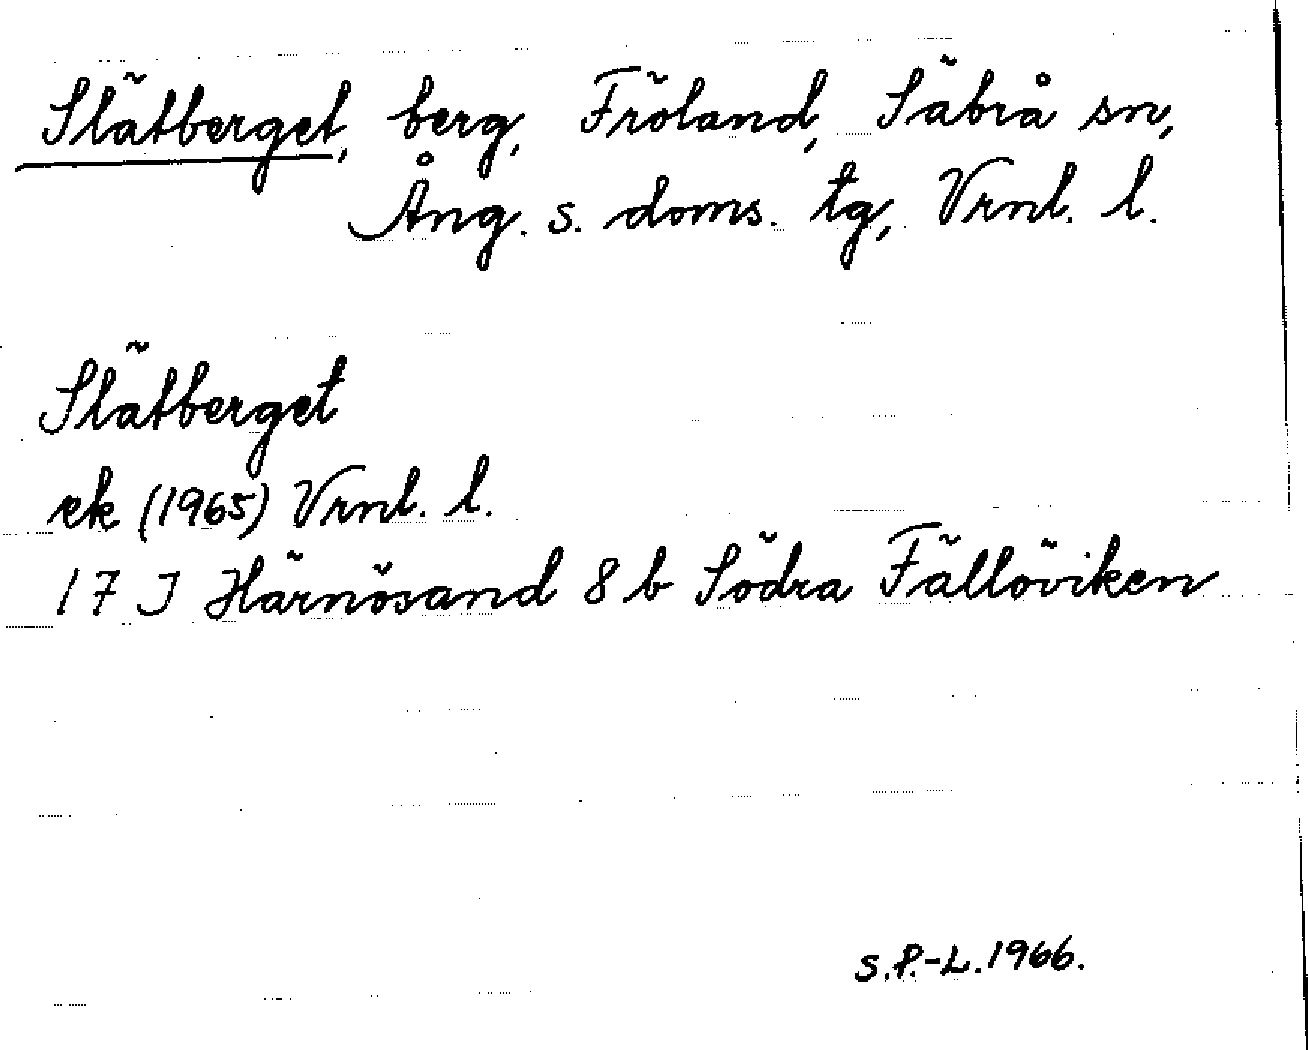 Slätberget, berg, Fröland, Säbrå sn,
Ång. s. doms. tg, Vrnl. l.
Slätberget
ek (1965) Vrnl. l.
17 J Härnösand 8 b Södra Fällöviken
S.P.-L. 1966.